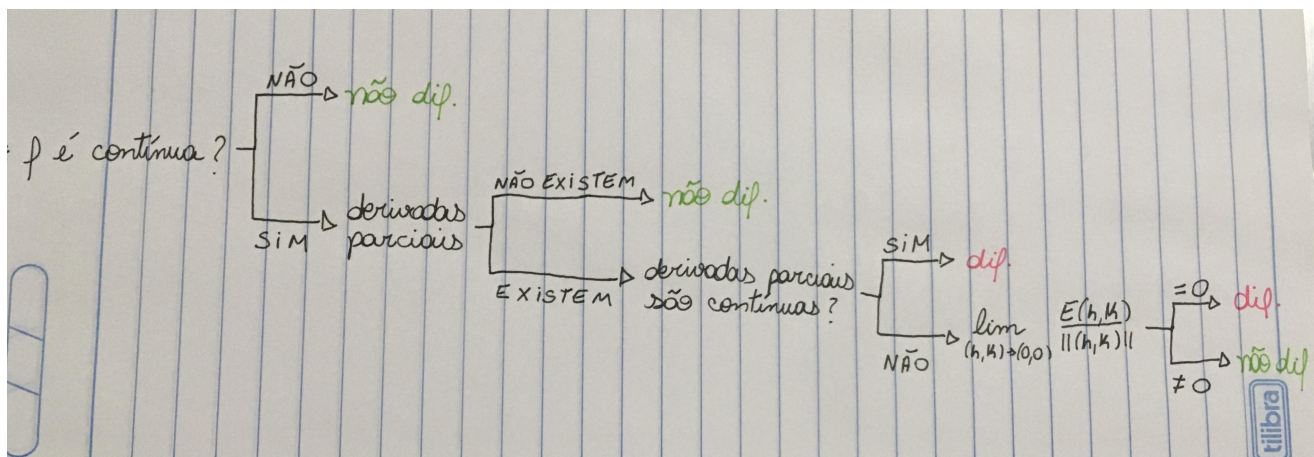 f é contínua?
NÃO
não dif.
SIM
derivadas
parciais
NÃO EXISTEM
não dif.
EXISTEM
derivadas parciais
são contínuas?
SIM
dif.
NÃO
lim
(h,k)→(0,0)
E(h,k)
||(h,k)||
=0
dif.
≠0
não dif
tilibra